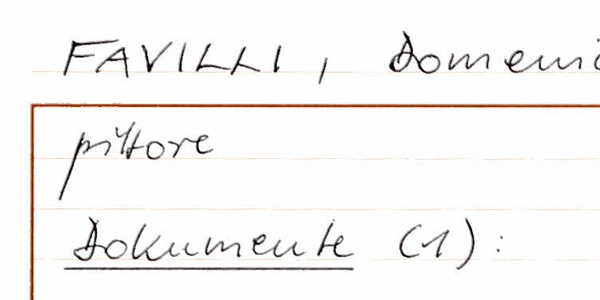 FAVILLI, Domeni
pittore
Dokumente (1):